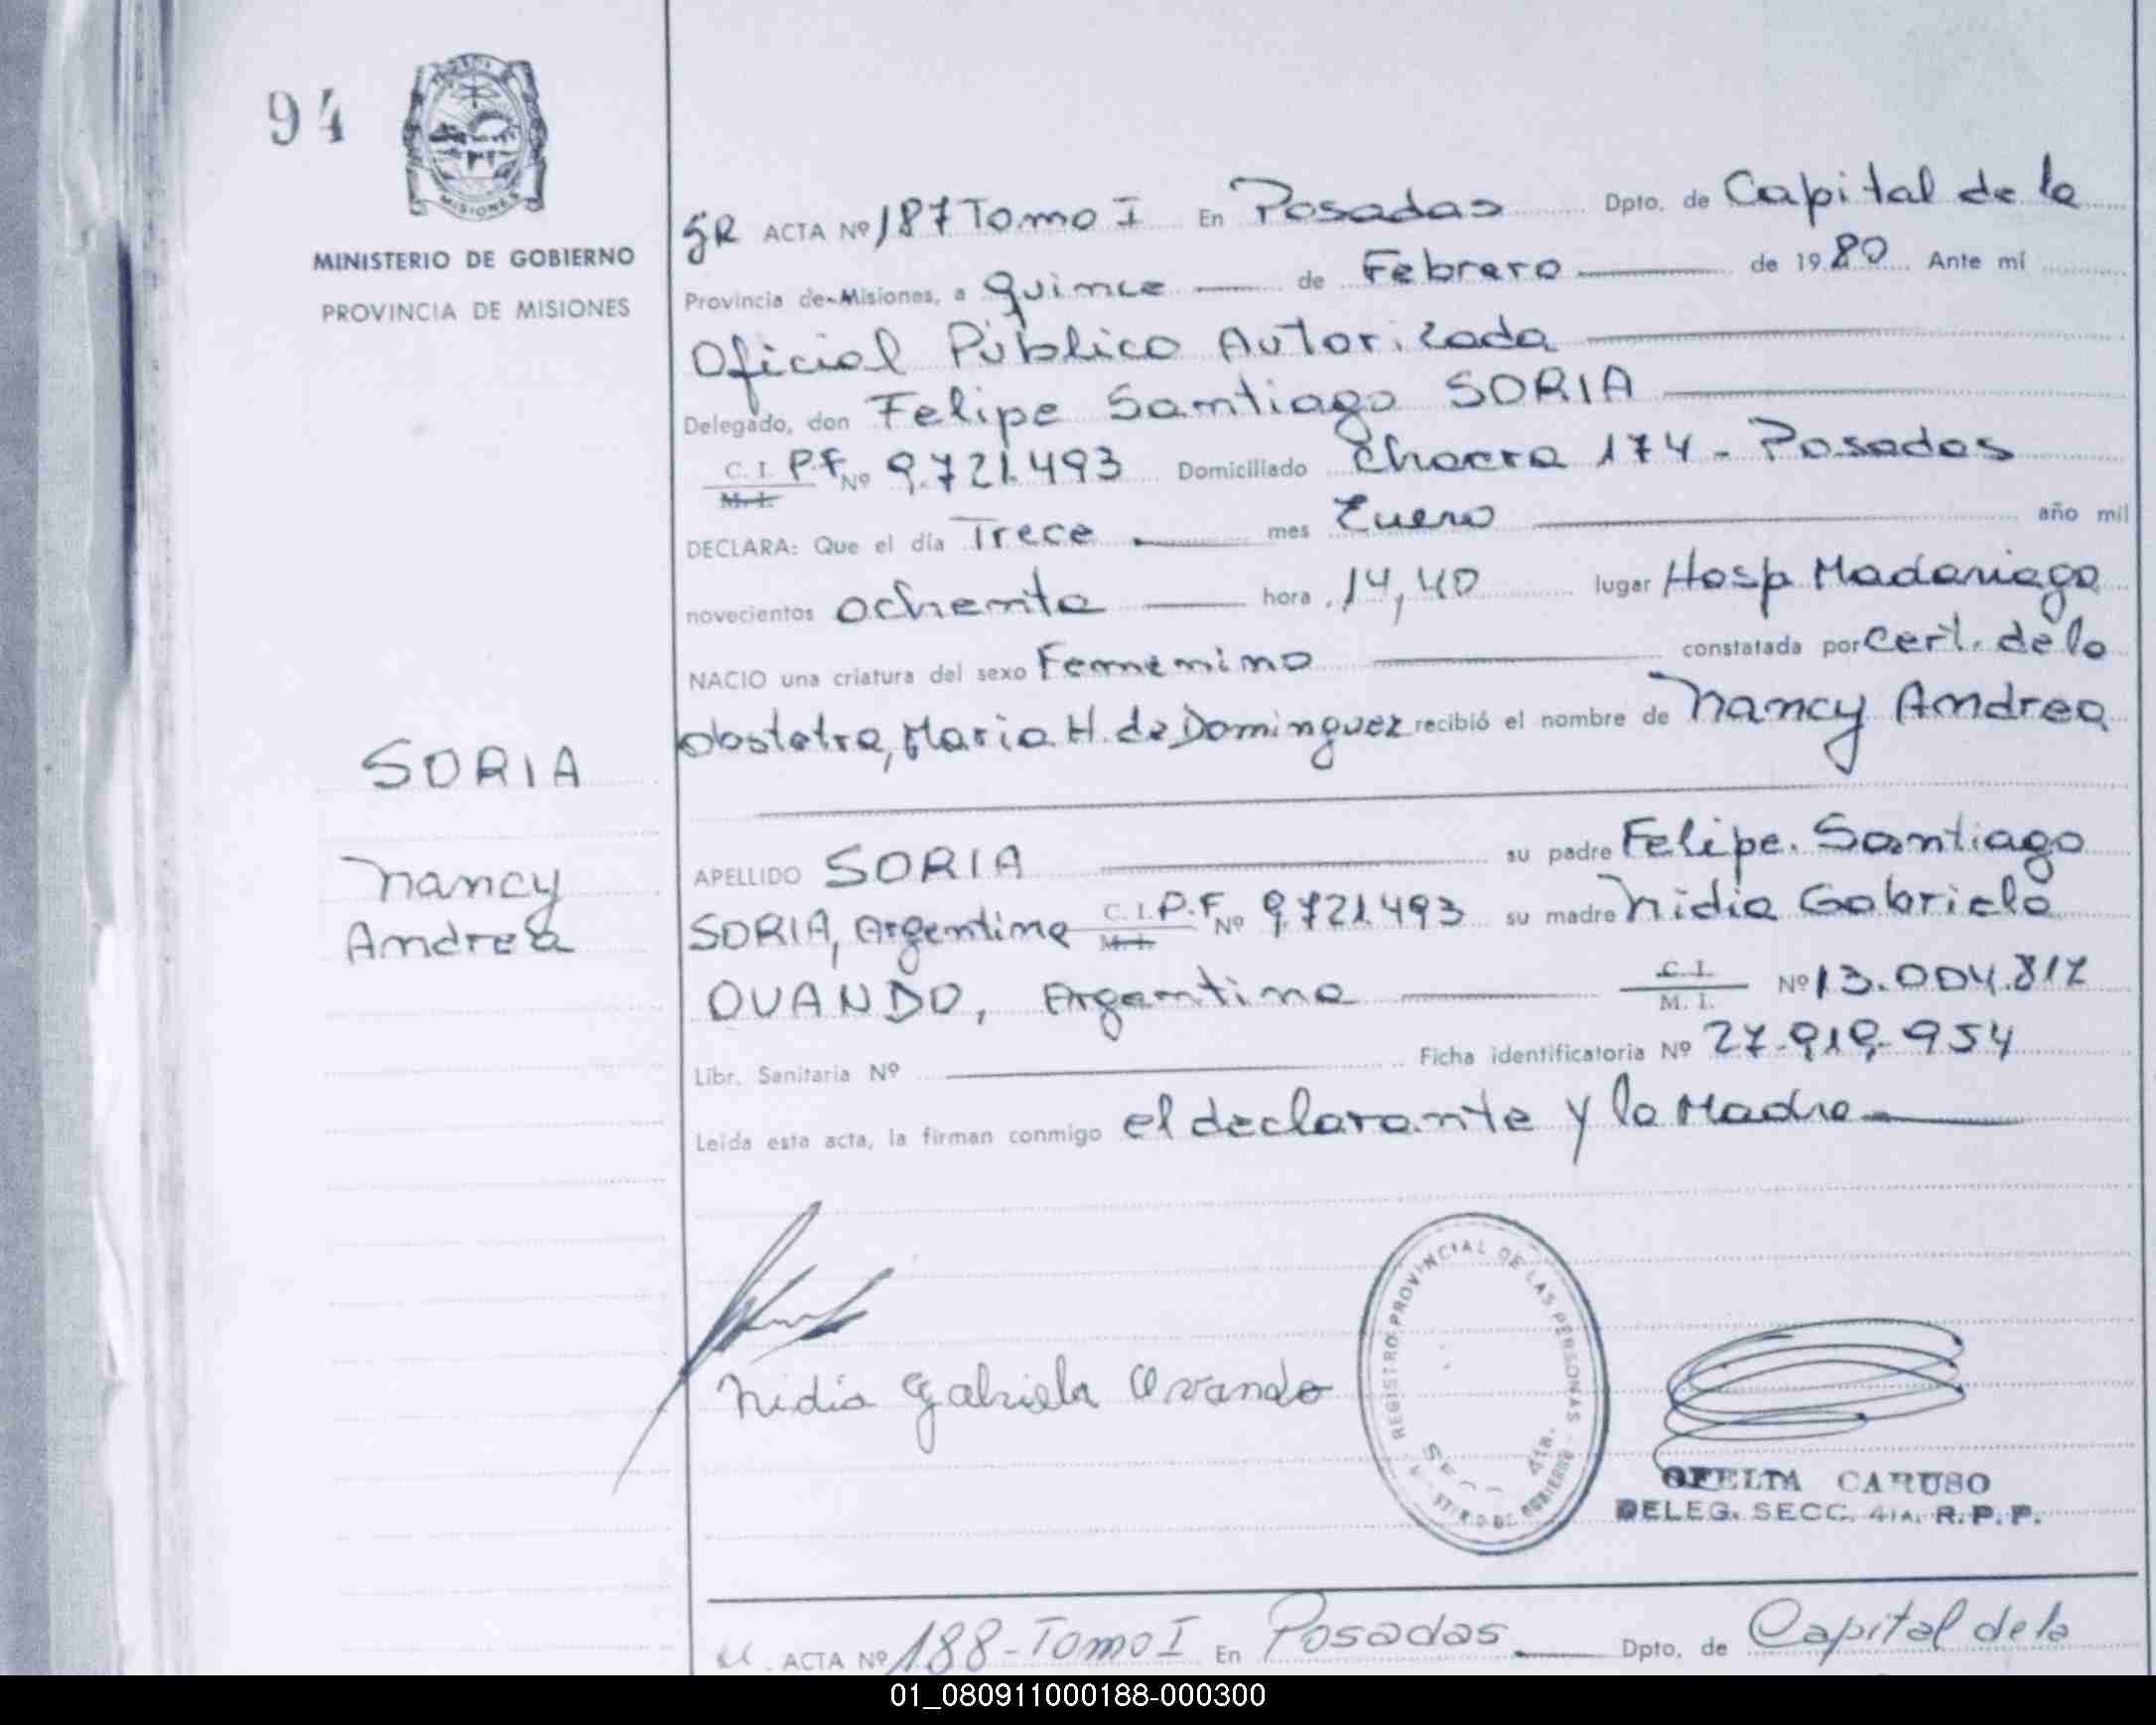 94
MISIONES
MINISTERIO DE GOBIERNO
PROVINCIA DE MISIONES
SORIA
Nancy
Andrea
GR ACTA Nº 187 Tomo I En Posadas Dpto. de Capital de la
Provincia de Misiones, a Quince de Febrero de 1980 Ante mí
Oficial Público Autorizada
Delegado, don Felipe Santiago SORIA
C. I. P.F. Nº 9.721.493 Domiciliado Chacra 174 - Posadas
M. I.
DECLARA: Que el día Trece mes Enero año mil
novecientos ochenta hora 14,40 lugar Hosp Madariaga
NACIO una criatura del sexo Femenino constatada por Cert. de la
obstetra, Maria H. de Dominguez recibió el nombre de Nancy Andrea
APELLIDO SORIA su padre Felipe Santiago
SORIA, Argentino C. I. P.F. Nº 9.721.493 su madre Nidia Gabriela
M. I.
OVANDO, Argentina C. I. Nº 13.004.817
M. I.
Libr. Sanitaria Nº Ficha identificatoria Nº 27.919.954
Leída esta acta, la firman conmigo el declarante y la Madre
Nidia Gabriela Ovando
REGISTRO PROVINCIAL DE LAS PERSONAS
4ta.
OFELIA CARUSO
DELEG. SECC. 4ta. R.P.P.
ACTA Nº 188 - Tomo I En Posadas Dpto. de Capital de la
01_080911000188-000300